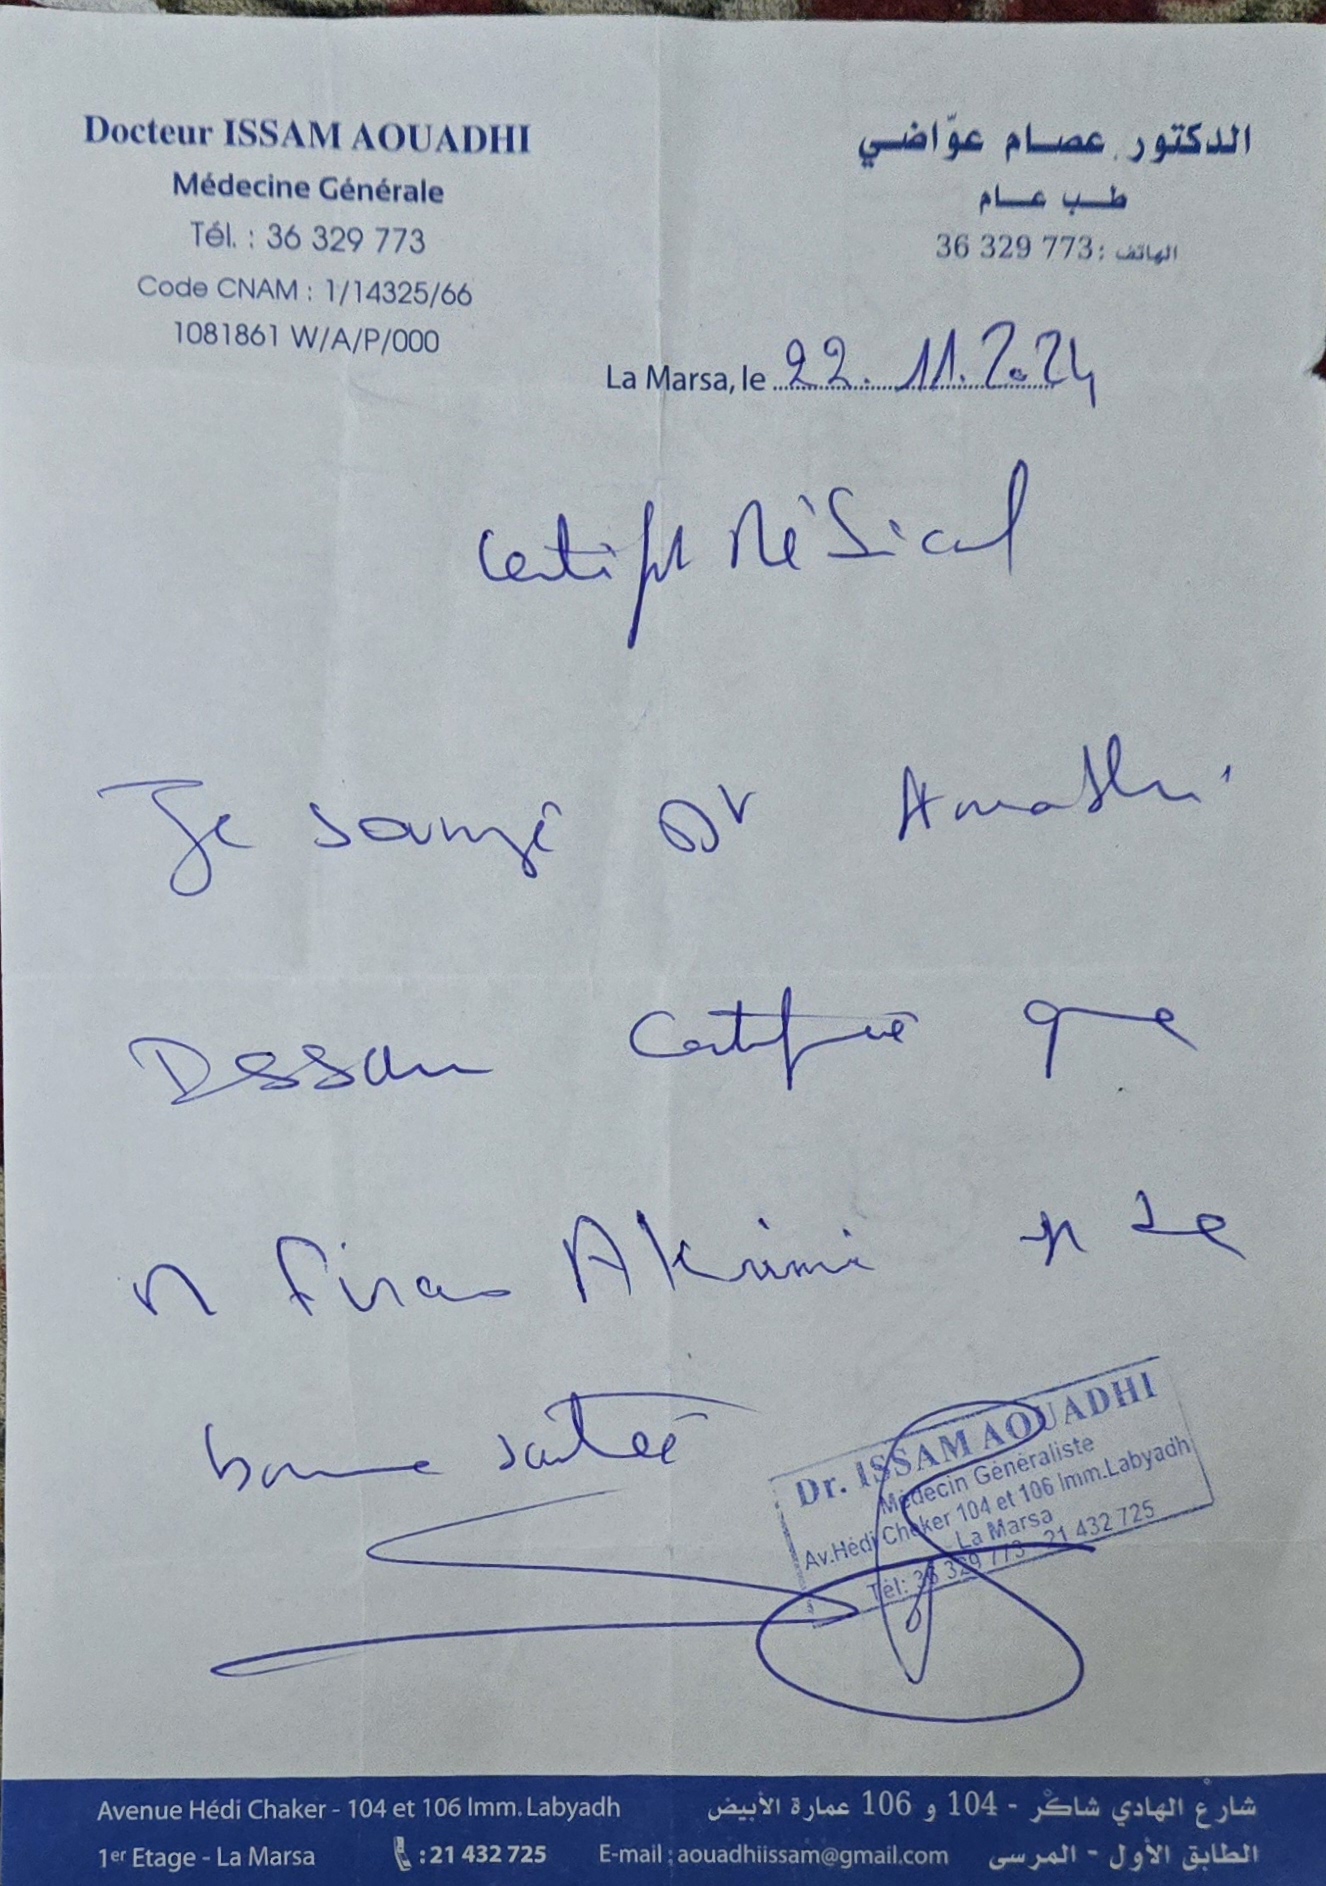 Docteur ISSAM AOUADHI
Médecine Générale
Tél. : 36 329 773
Code CNAM : 1/14325/66
1081861 W/A/P/000
الدكتور عصام عوّاضي
طب عام
الهاتف : 773 329 36
La Marsa, le 22. 11. 2024
Certifit Médical
Je sousigné Dr Aouadhi
Issam certifie que
M Firas Akrimi de
bonne santée
Dr. ISSAM AOUADHI
Médecin Généraliste
Av.Hédi Cheker 104 et 106 Imm.Labyadh
La Marsa
Tél: 36 329 773 - 21 432 725
Avenue Hédi Chaker - 104 et 106 Imm. Labyadh
1er Etage - La Marsa
: 21 432 725
E-mail : aouadhiissam@gmail.com
شارع الهادي شاكر - 104 و 106 عمارة الأبيض
الطابق الأول - المرسى